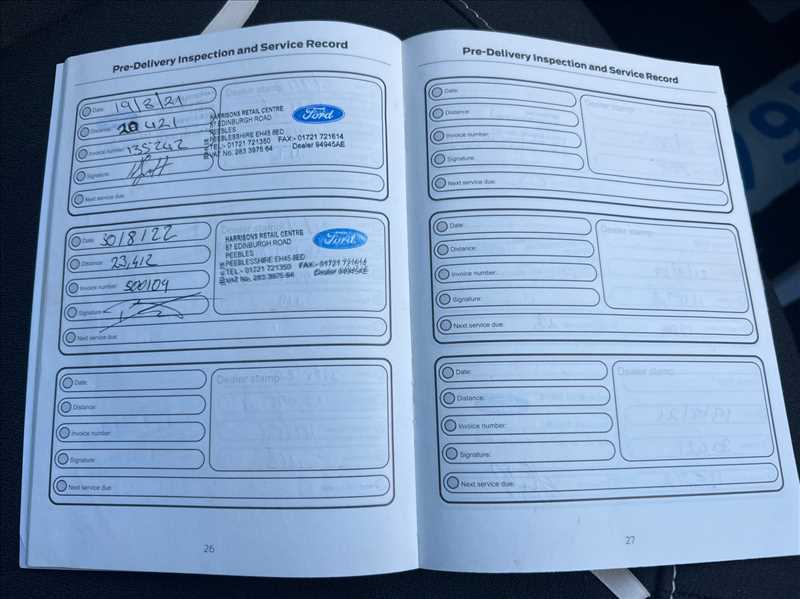 Pre-Delivery Inspection and Service Record
Date: 19/8/21
Distance: 20421
Invoice number: 135242
Signature:
Next service due:
Dealer stamp
HARRISONS RETAIL CENTRE
57 EDINBURGH ROAD
PEEBLES
PEEBLESSHIRE EH45 8ED
TEL:- 01721 721350 FAX:- 01721 721614
VAT No. 283 3975 64 Dealer 94945AE
Ford
Date: 30/8/22
Distance: 23,412
Invoice number: 500109
Signature:
Next service due:
Dealer stamp
HARRISONS RETAIL CENTRE
57 EDINBURGH ROAD
PEEBLES
PEEBLESSHIRE EH45 8ED
TEL:- 01721 721350 FAX:- 01721 721614
VAT No. 283 3975 64 Dealer 94945AE
Ford
Date:
Distance:
Invoice number:
Signature:
Next service due:
Dealer stamp
26
Pre-Delivery Inspection and Service Record
Date:
Distance:
Invoice number:
Signature:
Next service due:
Dealer stamp
Date:
Distance:
Invoice number:
Signature:
Next service due:
Dealer stamp
Date:
Distance:
Invoice number:
Signature:
Next service due:
Dealer stamp
27